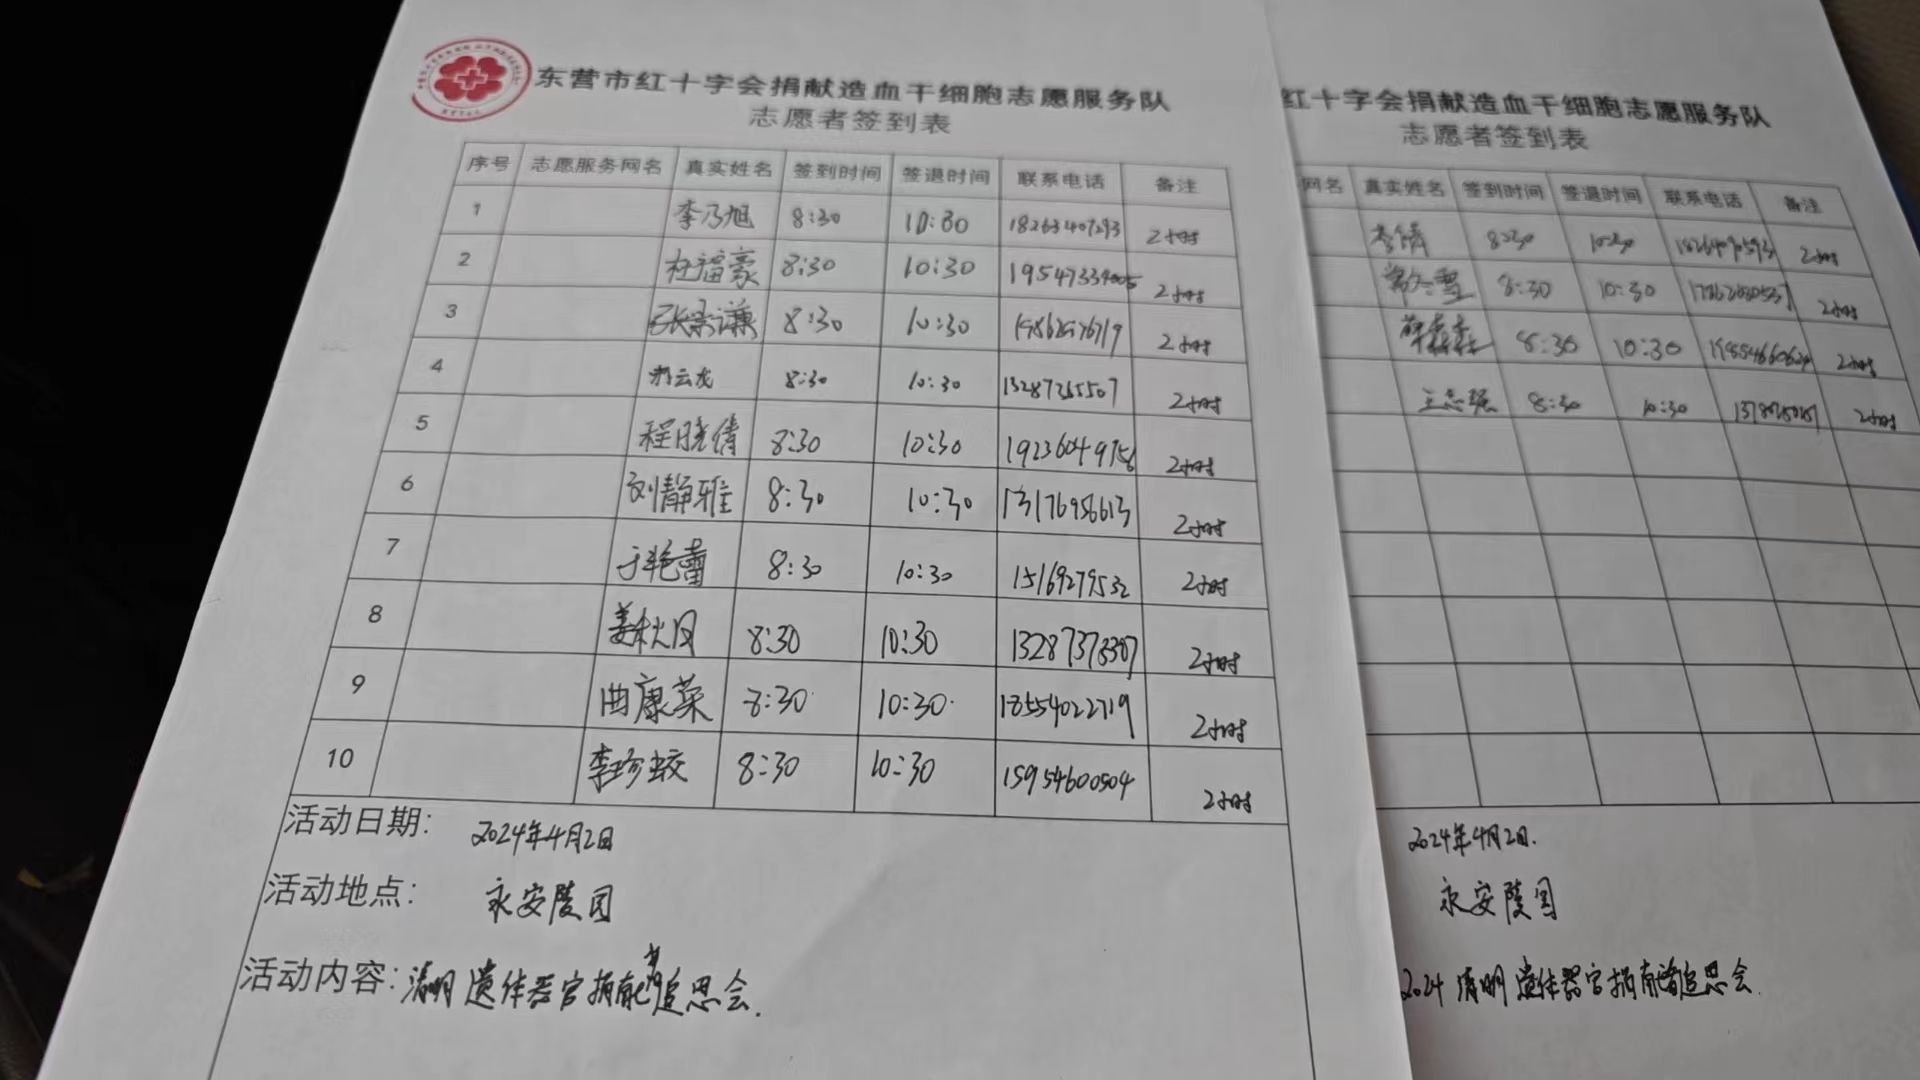 东营市红十字会捐献造血干细胞志愿服务队
志愿者签到表
序号 志愿服务网名 真实姓名 签到时间 签退时间 联系电话 备注
1 李乃旭 8:30 10:30 18263407293 2小时
2 杜福豪 8:30 10:30 2小时
3 张宗谦 8:30 10:30 2小时
4 云龙 8:30 10:30 13287265507 2小时
5 程晓倩 8:30 10:30 19236049756 2小时
6 刘静雅 8:30 10:30 13176956613 2小时
7 于艳蕾 8:30 10:30 15169279532 2小时
8 姜秋月 8:30 10:30 13287373307 2小时
9 曲康英 8:30 10:30 18554022719 2小时
10 李珍蛟 8:30 10:30 15954600504 2小时
活动日期: 2024年4月2日
活动地点: 永安陵园
活动内容: 清明遗体器官捐献者追思会.
红十字会捐献造血干细胞志愿服务队
志愿者签到表
网名 真实姓名 签到时间 签退时间 联系电话 备注
李倩 8:30 10:30 2小时
8:30 10:30 2小时
薛森森 8:30 10:30 2小时
王志强 8:30 10:30 2小时
2024年4月2日.
永安陵园
2024清明遗体器官捐献者追思会.